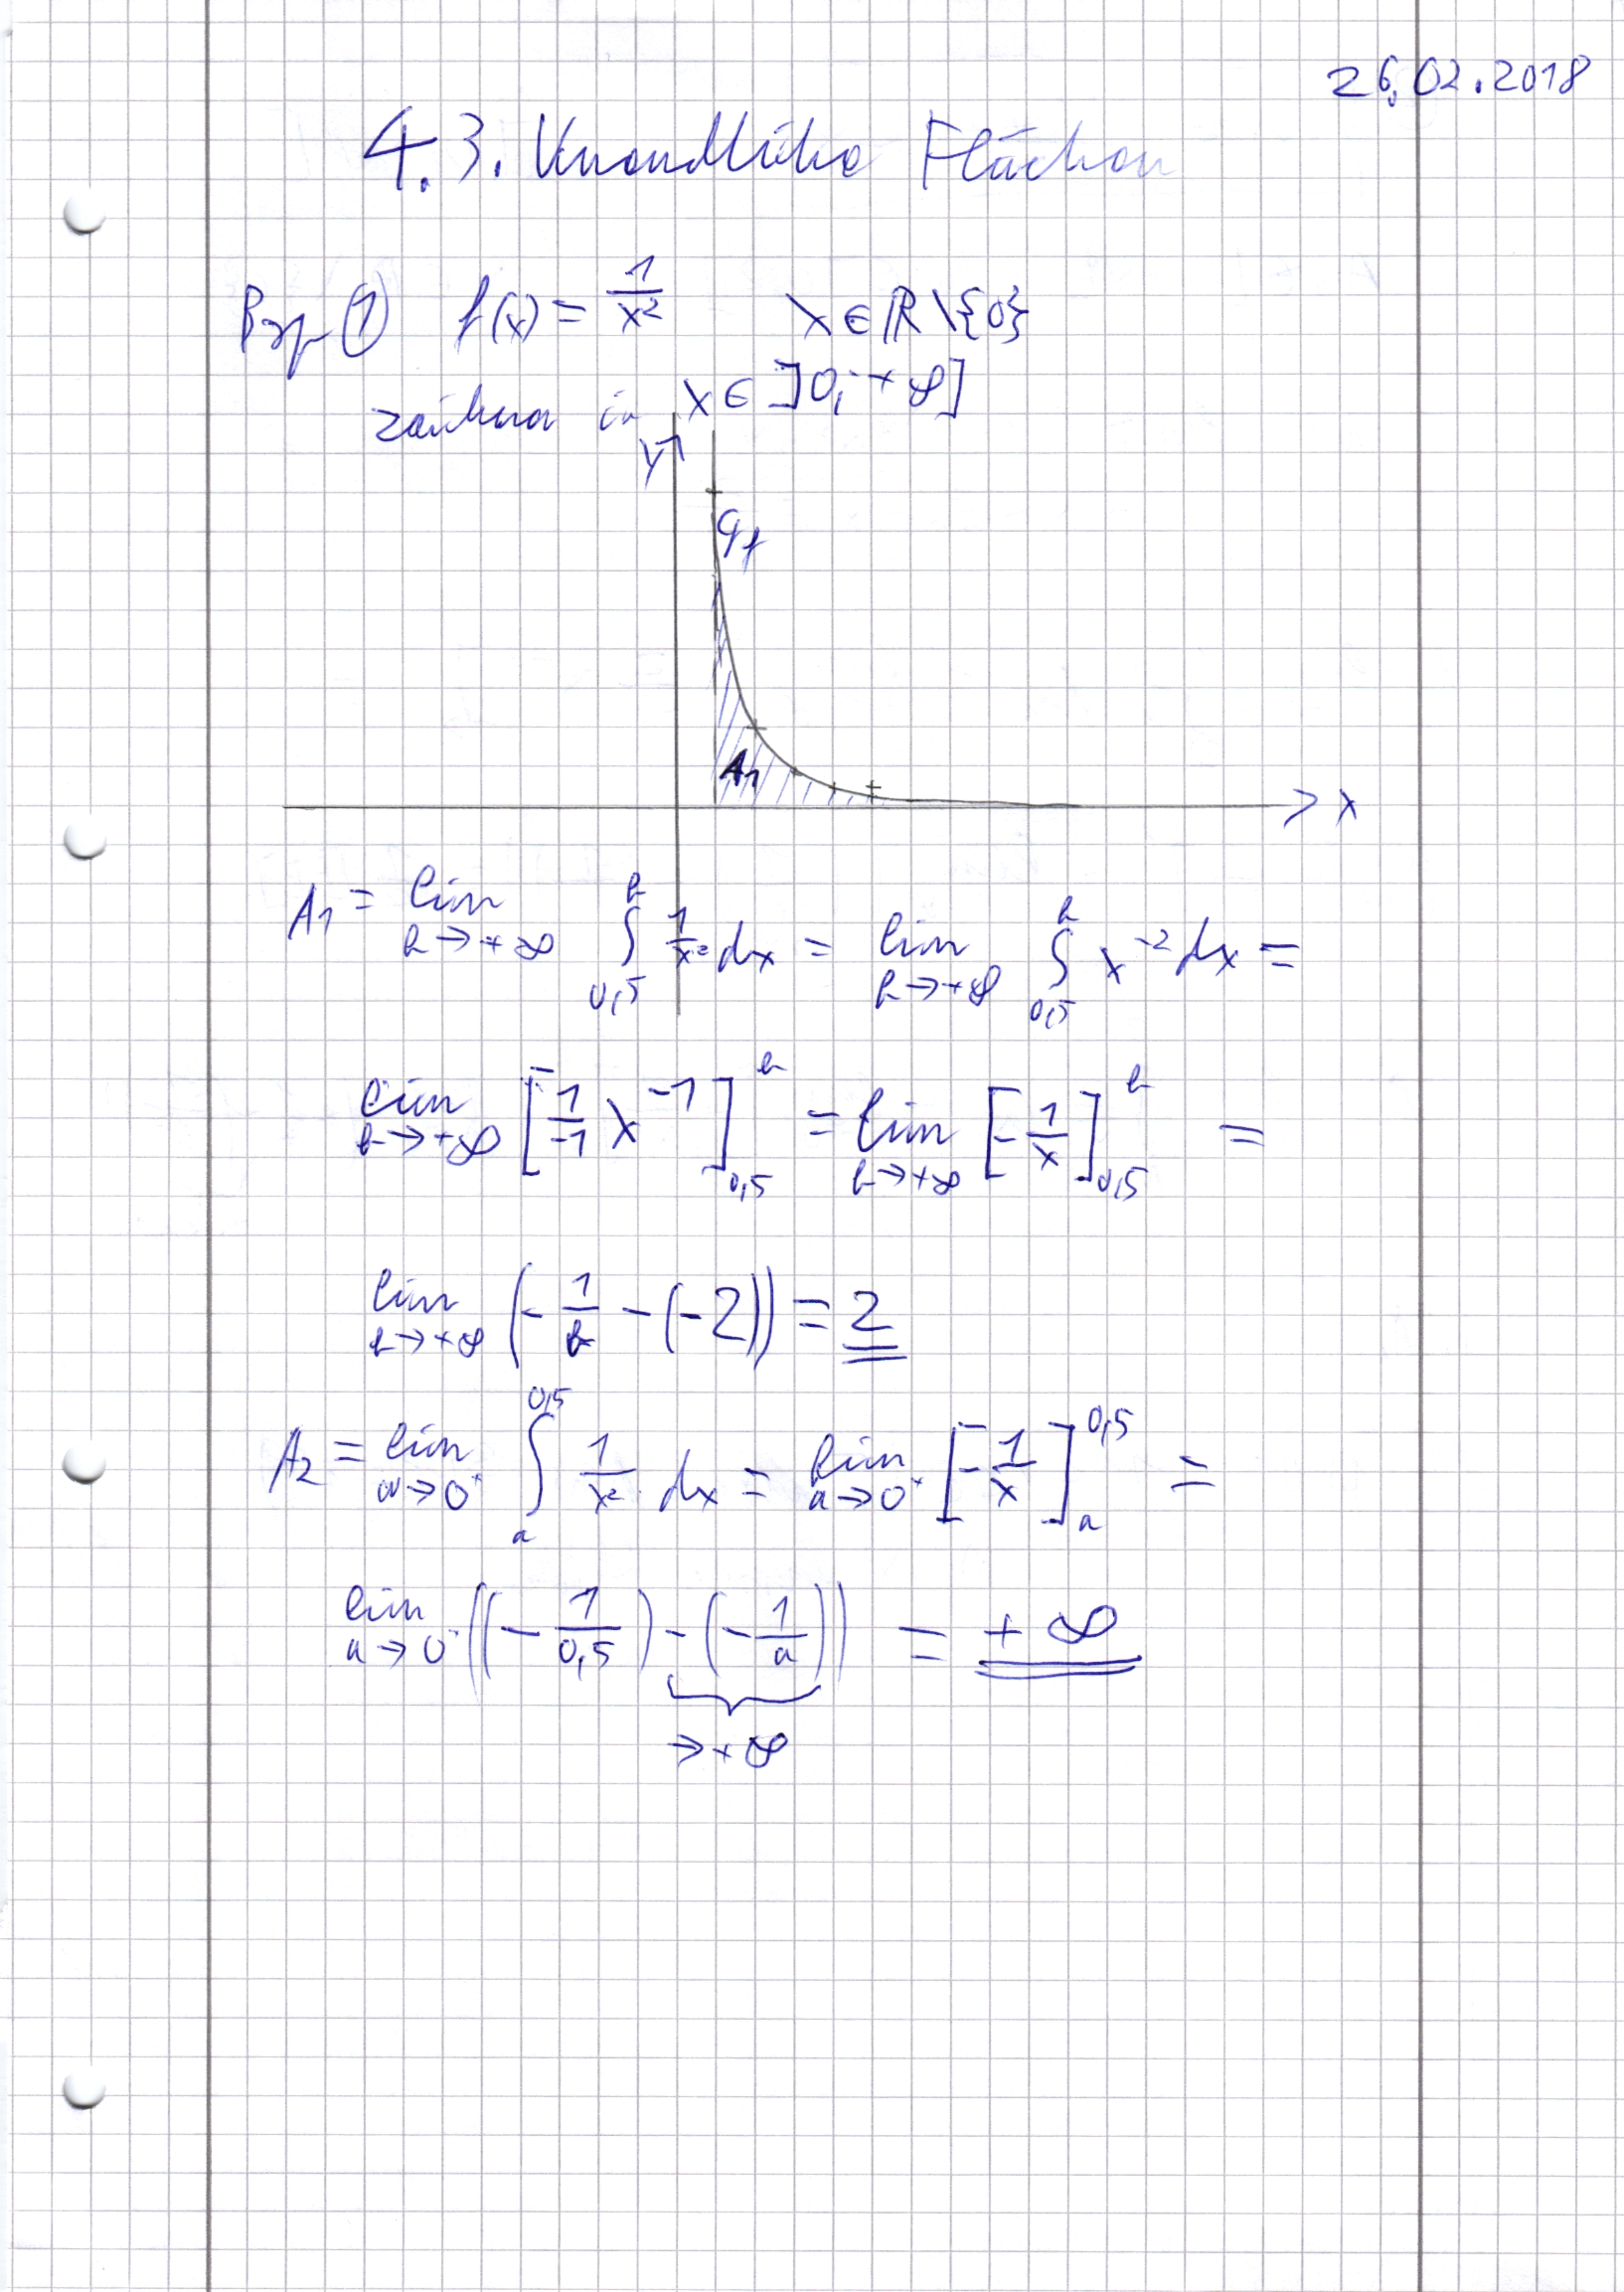 26.02.2018
4.3. Unendliche Flächen
Bsp ① f(x) = 1/x² x ∈ ℝ \ {0}
zeichnen in x ∈ ]0; +∞]
y
Gf
A₁
x
A₁ = lim b→+∞ ∫0,5^b 1/x² dx = lim b→+∞ ∫0,5^b x⁻² dx =
lim b→+∞ [1/-1 x⁻¹]0,5^b = lim b→+∞ [-1/x]0,5^b =
lim b→+∞ (-1/b - (-2)) = 2
A₂ = lim a→0⁺ ∫a^0,5 1/x² dx = lim a→0⁺ [-1/x]a^0,5 =
lim a→0⁺ ((-1/0,5) - (-1/a)) = +∞
→+∞